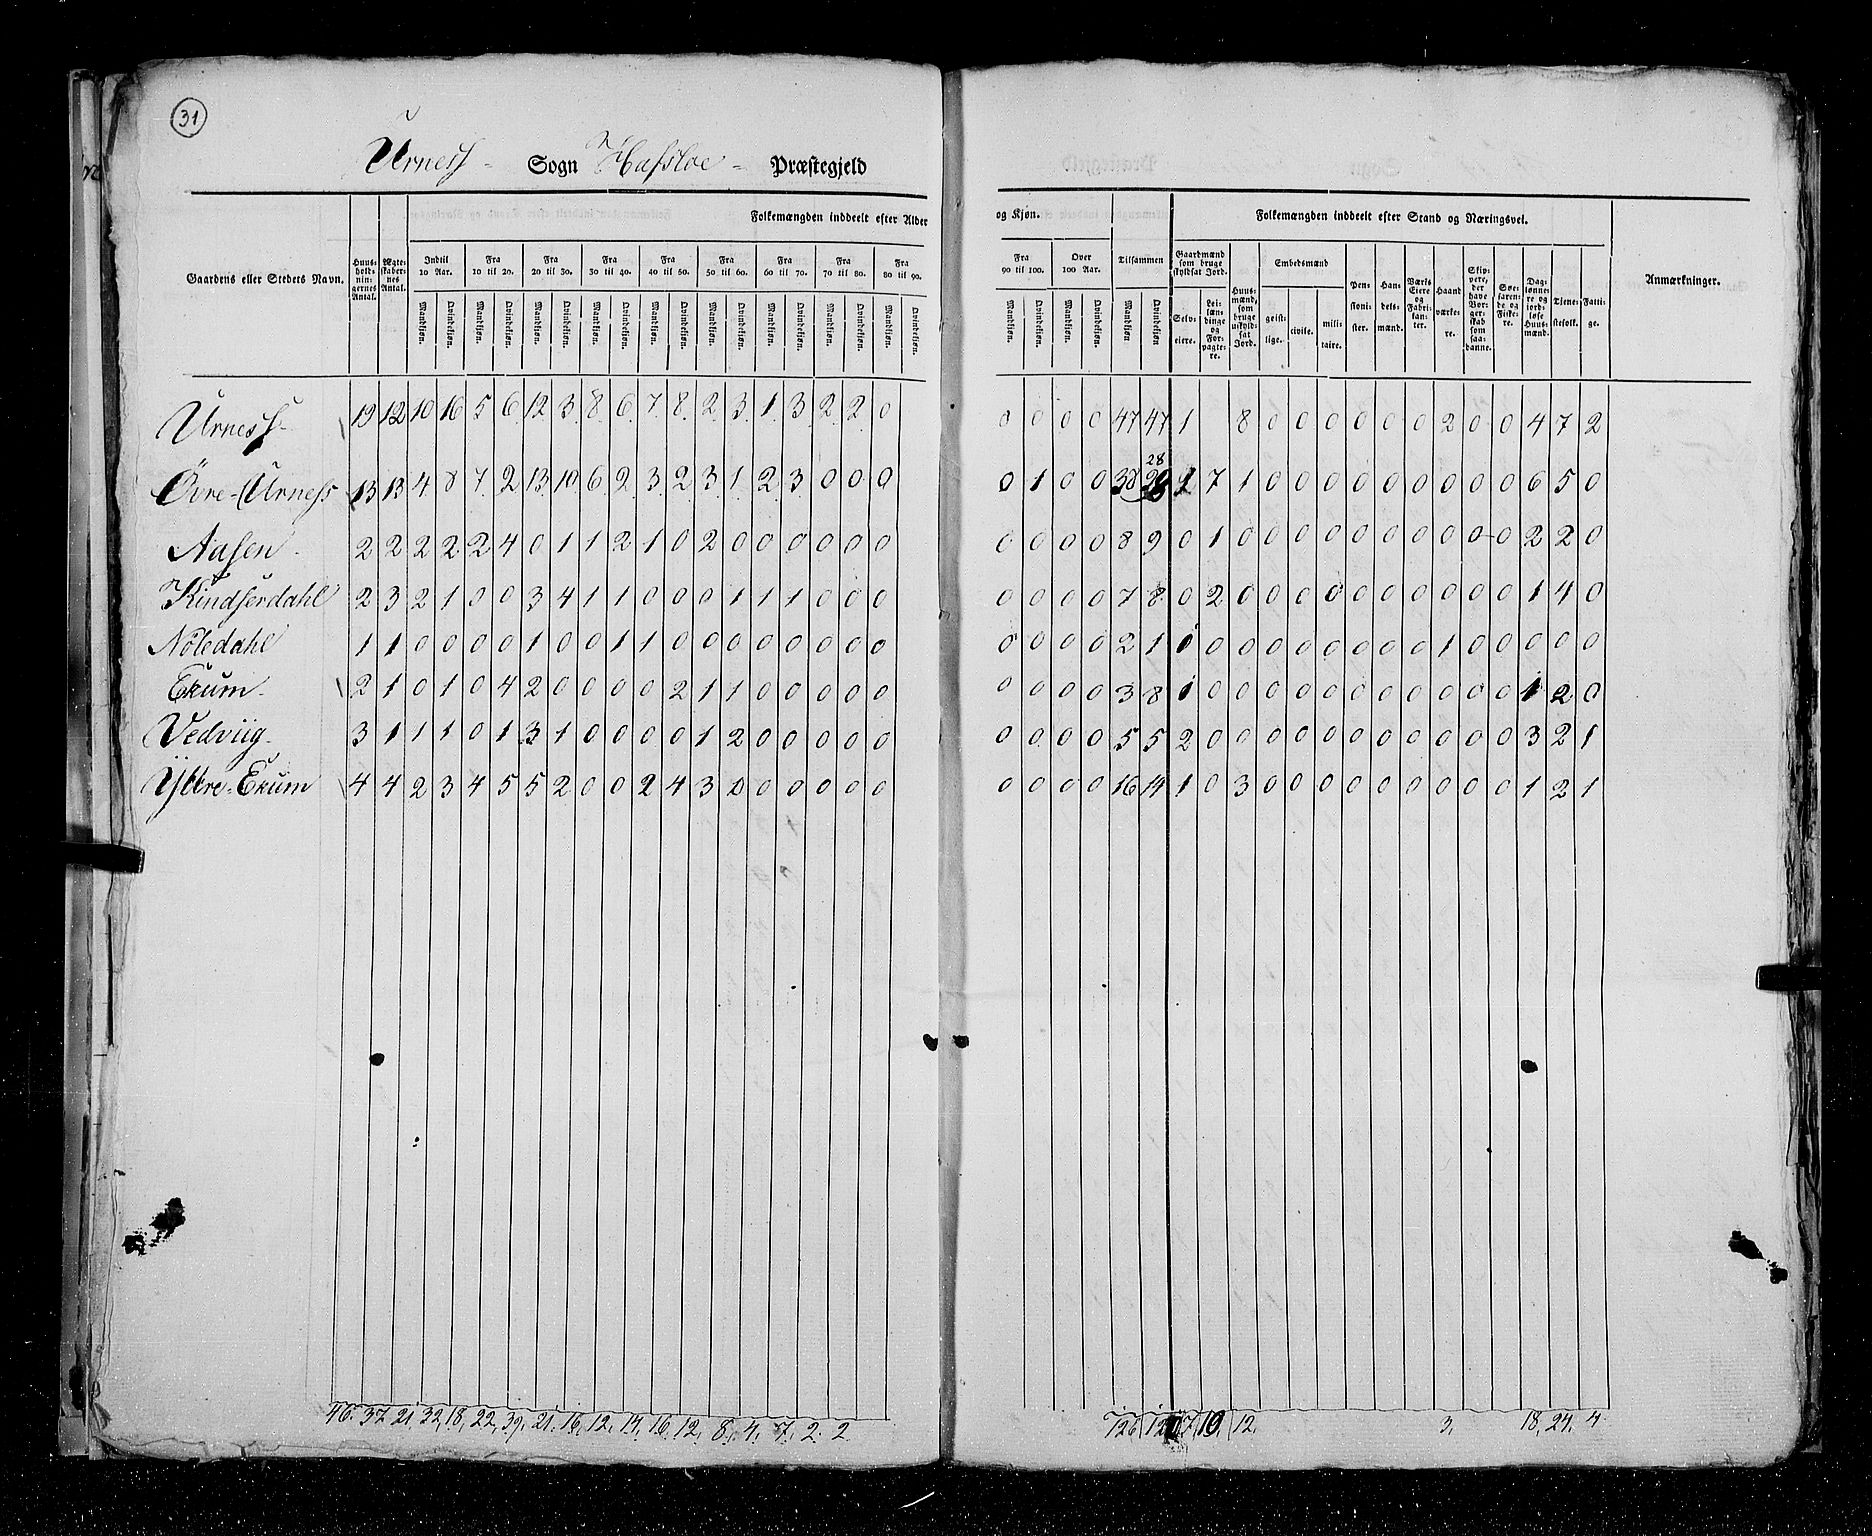 31
Urness - Sogn Hafsloe - Præstegjeld
Gaardens eller Steders Navn. Huus-holdnin-gernes Antal. Ægte-skaber-nes Antal. Folkemængden inddeelt efter Alder og Kjøn. Tilsammen Folkemængden inddeelt efter Stand og Næringsvei. Anmærkninger.
Indtil 10 Aar. Fra 10 til 20. Fra 20 til 30. Fra 30 til 40. Fra 40 til 50. Fra 50 til 60. Fra 60 til 70. Fra 70 til 80. Fra 80 til 90. Fra 90 til 100. Over 100 Aar.
Gaardmænd som bruge skyldsat Jord. Huus-mænd, som bruge uskyld-sat Jord. Embedsmænd Pen-sioni-ster. Han-dels-mænd. Værks Eiere og Fabri-kan-ter. Haand værke-re. Skip-pere, der have Bor-ger-skab som saa-danne. Søe-faren-de og Fiske-re. Dag-lønne-re og jord-løse Huus-mænd. Tjene-stefolk. Fatti-ge.
Selv-eiere. Lei-læn-dinge og For-pagte-re. geist-lige. civile. mili-taire.
Mandkjøn. Qvindekjøn. Mandkjøn. Qvindekjøn. Mandkjøn. Qvindekjøn. Mandkjøn. Qvindekjøn. Mandkjøn. Qvindekjøn. Mandkjøn. Qvindekjøn. Mandkjøn. Qvindekjøn. Mandkjøn. Qvindekjøn. Mandkjøn. Qvindekjøn. Mandkjøn. Qvindekjøn. Mandkjøn. Qvindekjøn. Mandkjøn. Qvindekjøn
Urness - 19 12 10 16 5 6 12 3 8 6 7 8 2 3 1 3 2 2 0 0 0 0 0 47 47 1 8 0 0 0 0 0 0 2 0 0 4 7 2
Övre-Urness 13 13 4 8 7 2 13 10 6 2 3 2 3 1 2 3 0 0 0 0 1 0 0 38 28 1 7 1 0 0 0 0 0 0 0 0 0 6 5 0
Aasen - 2 2 2 2 2 4 0 1 1 2 1 0 2 0 0 0 0 0 0 0 0 0 0 8 9 0 1 0 0 0 0 0 0 0 0 0 0 2 2 0
Kindserdahl 2 3 2 1 0 0 3 4 1 1 0 0 0 1 1 1 0 0 0 0 0 0 0 7 8 0 2 0 0 0 0 0 0 0 0 0 0 1 4 0
Nöledahl 1 1 0 0 0 0 1 0 0 1 1 0 0 0 0 0 0 0 0 0 0 0 0 2 1 0 0 0 0 0 0 0 0 0 1 0 0 0 0 0
Ekum - 2 1 0 1 0 4 2 0 0 0 0 2 1 1 0 0 0 0 0 0 0 0 0 3 8 1 0 0 0 0 0 0 0 0 0 0 0 1 2 0
Vedviig - 3 1 1 1 0 1 3 1 0 0 0 0 1 2 0 0 0 0 0 0 0 0 0 5 5 2 0 0 0 0 0 0 0 0 0 0 0 3 2 1
Yttre-Ekum 4 4 2 3 4 5 5 2 0 0 2 4 3 0 0 0 0 0 0 0 0 0 0 16 14 1 0 3 0 0 0 0 0 0 0 0 0 1 2 1
46. 37 21 32, 18, 22, 39, 21. 16, 12, 14, 16, 12, 8, 4, 7, 2. 2 126 120 7 10, 12. 3, 18, 24, 4